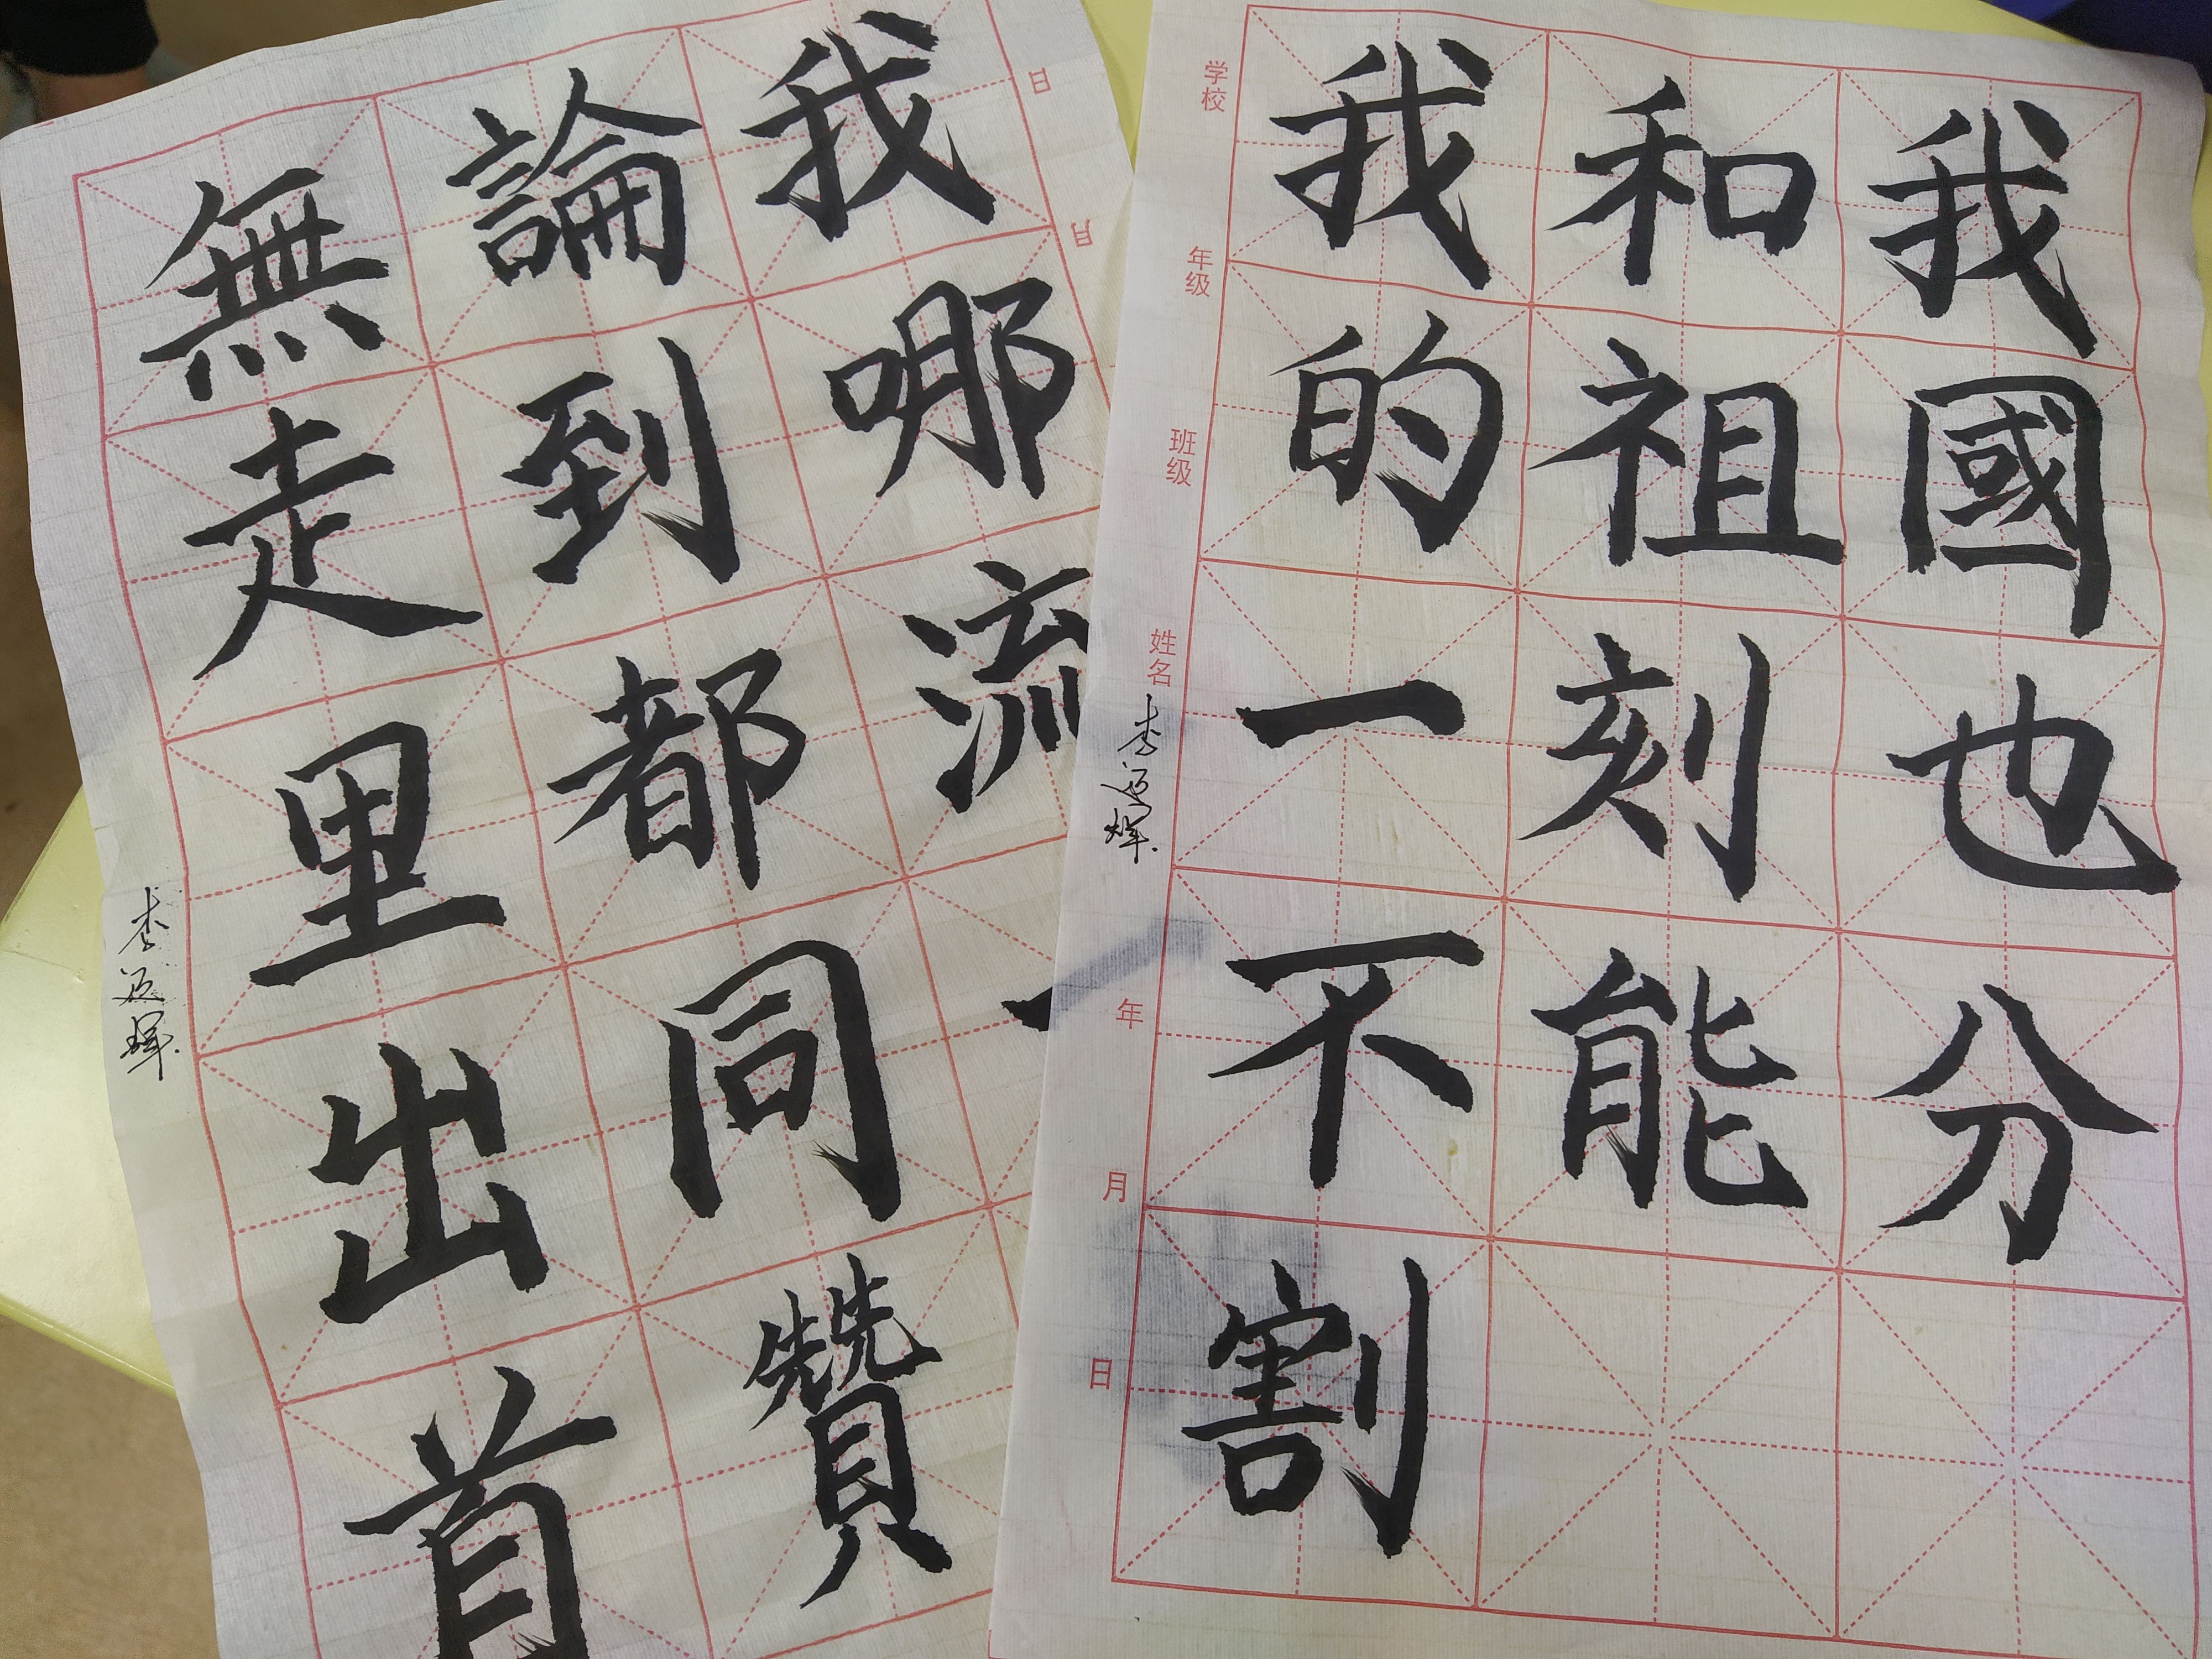 無論我
走到哪
里都流
出同
首贊
日
月
学校
年级
班级
姓名
年
月
日
我和我
的祖國
一刻也
不能分
割